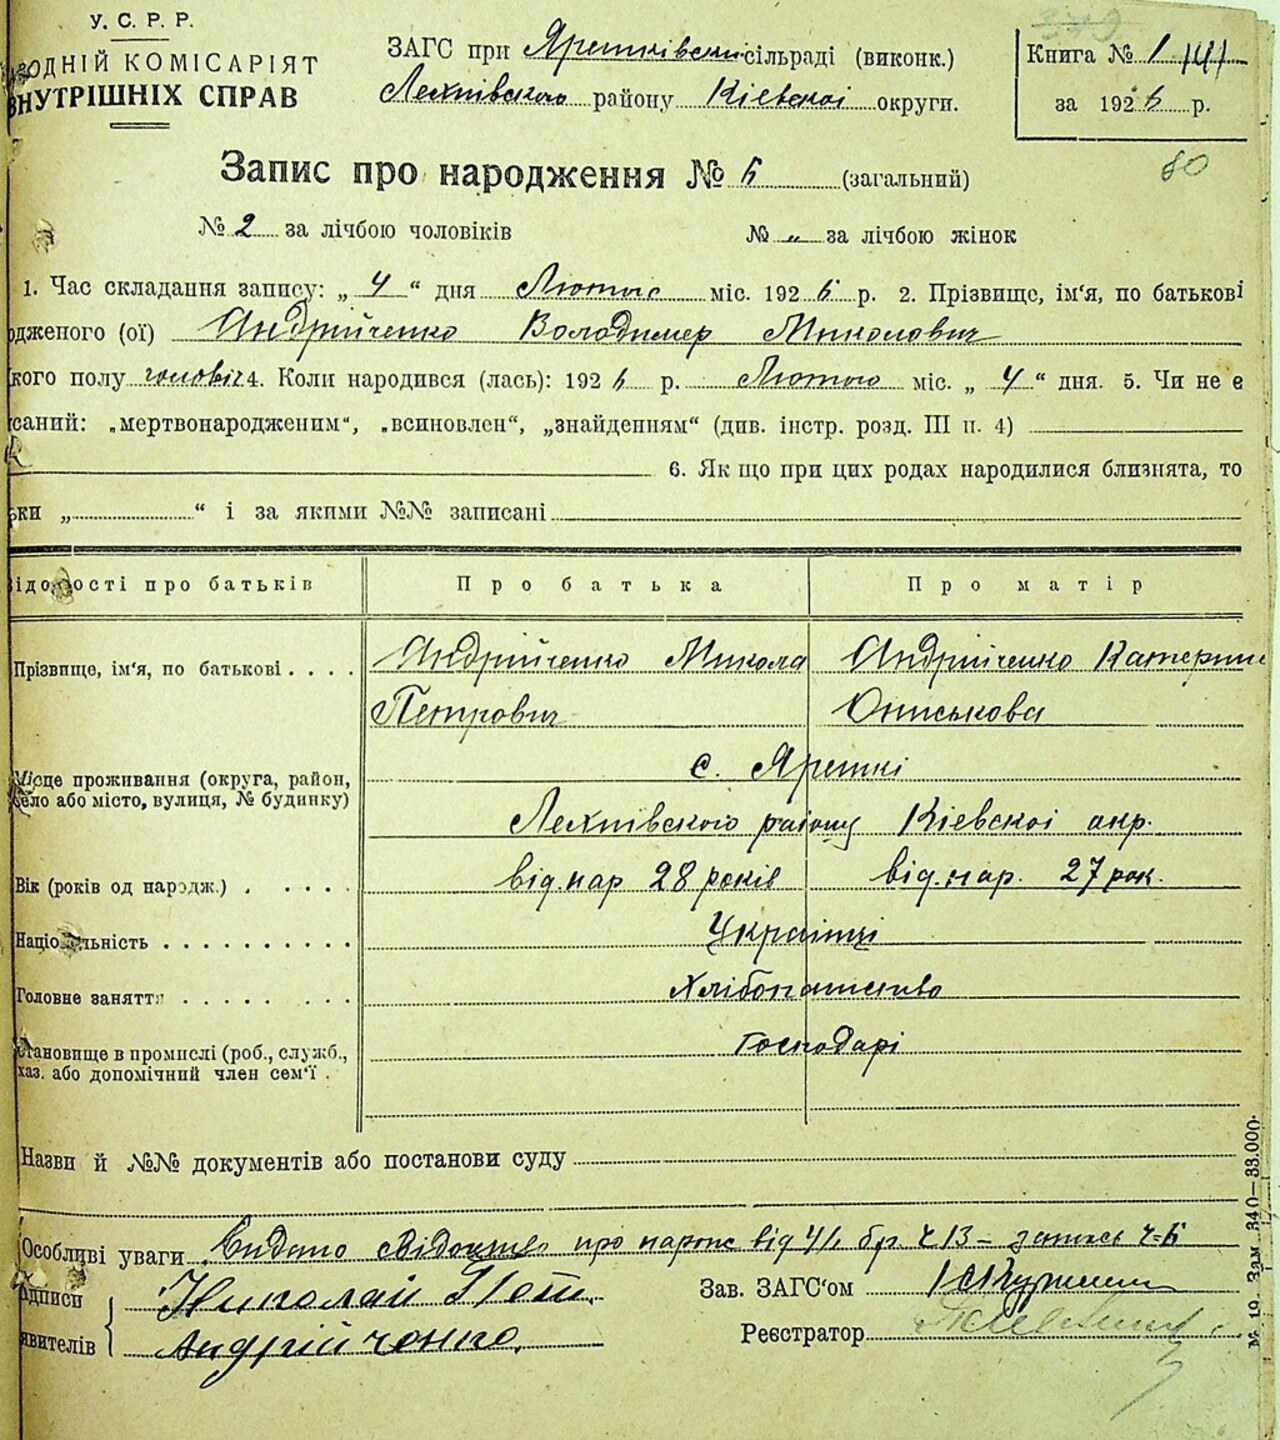 У. С. Р. Р.
ОДНІЙ КОМІСАРІЯТ
ВНУТРІШНІХ СПРАВ
ЗАГС при Ярешківськ. сільраді (виконк.)
району Кіевскоі округи.
Книга № 1
за 1926 р.
80
Запис про народження № 6 (загальний)
№ 2 за лічбою чоловіків № „ за лічбою жінок
1. Час складання запису: „ 4 “ дня Лютого міс. 1926 р. 2. Прізвище, ім'я, по батькові
одженого (ої) Андрійченко Володимер Миколович
кого полу чоловіч 4. Коли народився (лась): 1926 р. Лютого міс. „ 4 “ дня. 5. Чи не є
саний: „мертвонародженим“, „всиновлен“, „знайденням“ (див. інстр. розд. III п. 4)
6. Як що при цих родах народилися близнята, то
ьки „ “ і за якими №№ записані
Відомості про батьків Про батька Про матір
Прізвище, ім'я, по батькові . . . . Андрійченко Микола Андрійченко Катерина
Петрович Ониськова
с.Ярешкі
Місце проживання (округа, район,
село або місто, вулиця, № будинку)
району Кіевскоі окр.
Вік (років од народж.) . . . . . від. нар 28 років від. нар. 27 рок.
Національність . . . . . . . . . . Українці
Головне заняття . . . . . . . . Хлібопашество
Господарі
Становище в промислі (роб., служб.,
хаз. або допомічний член сем'ї .
Назви й №№ документів або постанови суду
Особливі уваги Видано свідоцтво про народж від 4/ бр. ч 13 – запись ч=6
ідписи Николай Пет. Зав. ЗАГС'ом
явителів Андрійченко. Реєстратор
№ 19. Зам. 340—33.000.